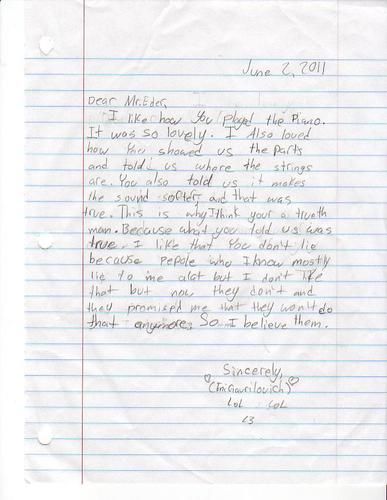 June 2, 2011
Dear Mr. Eder,
I like how You played the Piano.
It was so lovely. I Also loved
how You showed us the parts
and told us where the strings
are. You also told us it makes
the sound softer, and that was
true. This is why I think your a trueth
man. Because what you told us was
true. I like that You don't lie
because pepole who I know mostly
lie to me alot but I don't like
that but now they don't and
they promised me that they won't do
that anymore. So I believe them.
Sincerely,
LoL LoL
<3